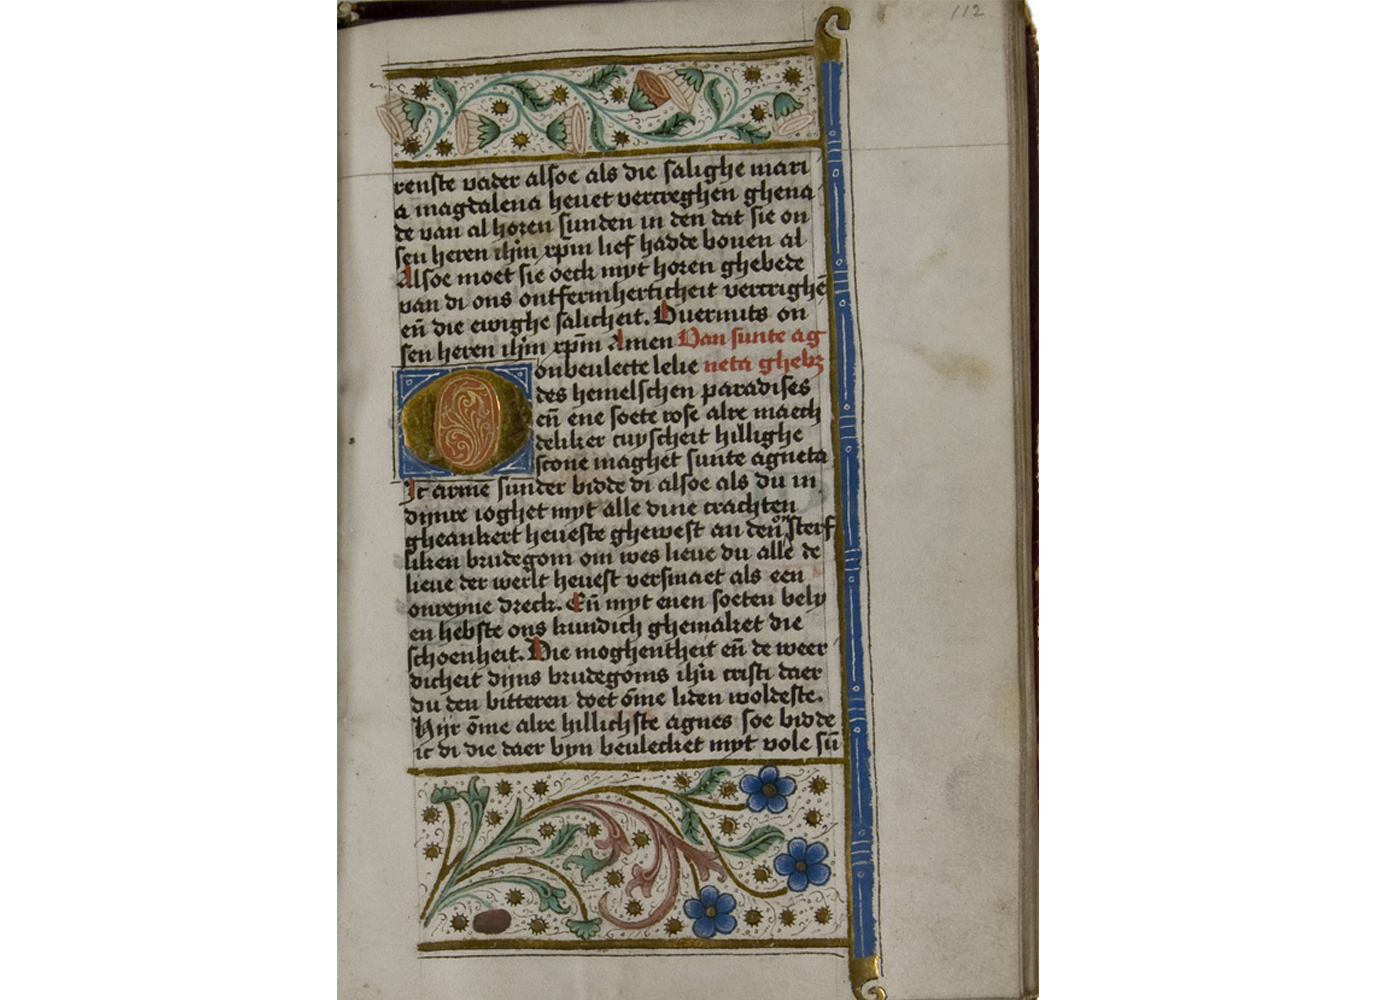 112
renste vader alsoe als die salighe mari
a magdalena heuet vercreghen ghena
de van al horen sunden in den dat sie on
sen heren ihm xpm lief hadde bouen al
Alsoe moet sie oeck myt horen ghebede
van di ons ontfermherticheit vercrighē
eñ die ewighe salicheit. Ouermits on
sen heren ihm xpm Amen Van sunte ag
O onbeulecte lelie neta ghebꝫ
des hemelschen paradises
eñ ene soete rose alre maech
deliker cuyscheit hillighe
scone maghet sunte agneta
Ic arme sunder bidde di alsoe als du in
dijnre ioghet myt alle dine crachten
gheankert heueste ghewest an den onsterf
liken brudegom om wes lieue du alle de
lieue der werlt heuest versmaet als een
onreyne dreck. Eñ myt enen soeten bely
en hebste ons kundich ghemaket die
schoenheit. Die moghentheit eñ de weer
dicheit dijns brudegoms ihu cristi daer
du den bitteren doet ōme liden woldeste.
Hijr ōme alre hillichste agnes soe bidde
ic di die daer byn beulecket myt vole sū